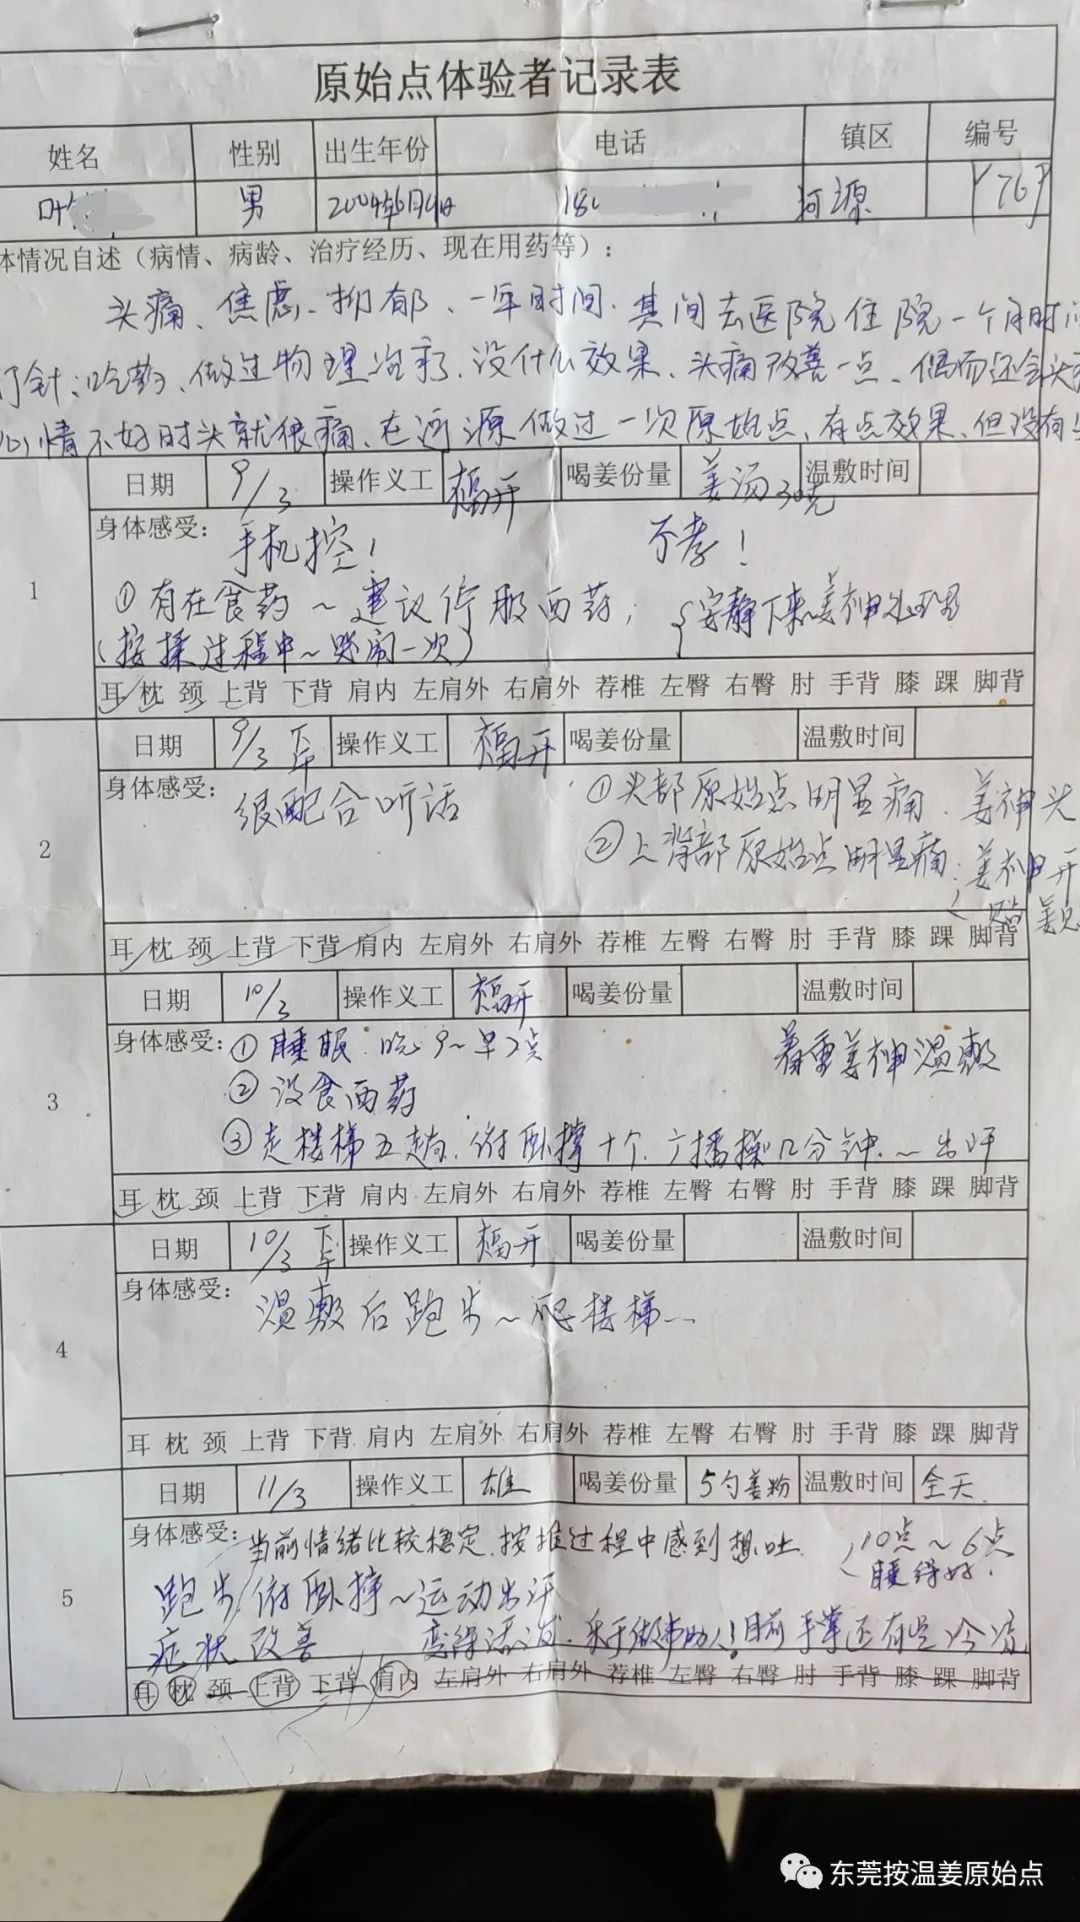 原始点体验者记录表
姓名 性别 出生年份 电话 镇区 编号
叶 男 2004年6月4日 180 河源 (76)
体情况自述（病情、病龄、治疗经历、现在用药等）：
头痛、焦虑、抑郁、一年时间.其间去医院住院一个月时间
打针、吃药、做过物理治疗、没什么效果、头痛改善一点、偶而还会头痛
心情不好时头就很痛、在河源做过一次原始点、有点效果、但没有
1
日期 9/3 操作义工 福开 喝姜份量 姜汤30克 温敷时间
身体感受： 手机控！ 不孝！
①有在食药～建议停服西药；
安静下来姜神处理
(按揉过程中～ 闹一次)
耳 枕 颈 上背 下背 肩内 左肩外 右肩外 荐椎 左臀 右臀 肘 手背 膝 踝 脚背
2
日期 9/3 下午 操作义工 福开 喝姜份量 温敷时间
身体感受： 很配合听话
①头部原始点明显痛.姜神头
②上背部原始点明显痛:姜神开
耳 枕 颈 上背 下背 肩内 左肩外 右肩外 荐椎 左臀 右臀 肘 手背 膝 踝 脚背
3
日期 10/3 操作义工 福开 喝姜份量 温敷时间
身体感受：①睡眠.晚9～早7点
着重姜神温敷
②没食西药
③走楼梯五趟.俯卧撑十个.广播操12分钟.～出汗
耳 枕 颈 上背 下背 肩内 左肩外 右肩外 荐椎 左臀 右臀 肘 手背 膝 踝 脚背
4
日期 10/3 下午 操作义工 福开 喝姜份量 温敷时间
身体感受： 温敷后跑步～爬楼梯…
耳 枕 颈 上背 下背 肩内 左肩外 右肩外 荐椎 左臀 右臀 肘 手背 膝 踝 脚背
5
日期 11/3 操作义工 雄 喝姜份量 5勺姜粉 温敷时间 全天.
身体感受：当前情绪比较稳定.按推过程中感到想吐.
10点～6点
睡得好.
跑步/俯卧撑～运动出汗
症状改善 变得活泼.乐于做事助人！目前手掌还有些冷凉
耳 枕 颈 上背 下背 肩内 左肩外 右肩外 荐椎 左臀 右臀 肘 手背 膝 踝 脚背
东莞按温姜原始点